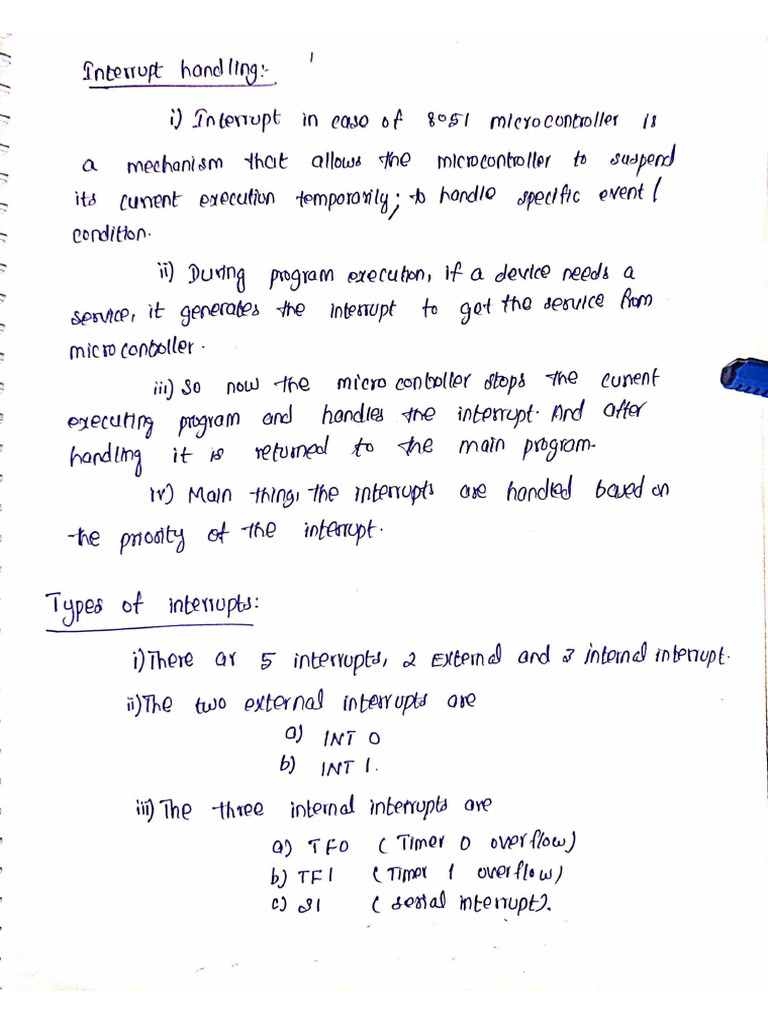 Interrupt handling:-
i) Interrupt in case of 8051 microcontroller is
a mechanism that allows the microcontroller to suspend
its current execution temporarily; to handle specific event /
condition.
ii) During program execution, if a device needs a
service, it generates the interrupt to get the service from
microcontroller.
iii) So now the microcontroller stops the current
executing program and handles the interrupt. And after
handling it is returned to the main program.
iv) Main thing, the interrupts are handled based on
the priority of the interrupt.
Types of interrupts:
i) There ar 5 interrupts, 2 External and 3 internal interrupt.
ii) The two external interrupts are
a) INT 0
b) INT 1.
iii) The three internal interrupts are
a) TF0 (Timer 0 overflow)
b) TF1 (Timer 1 overflow)
c) SI (serial interrupt).